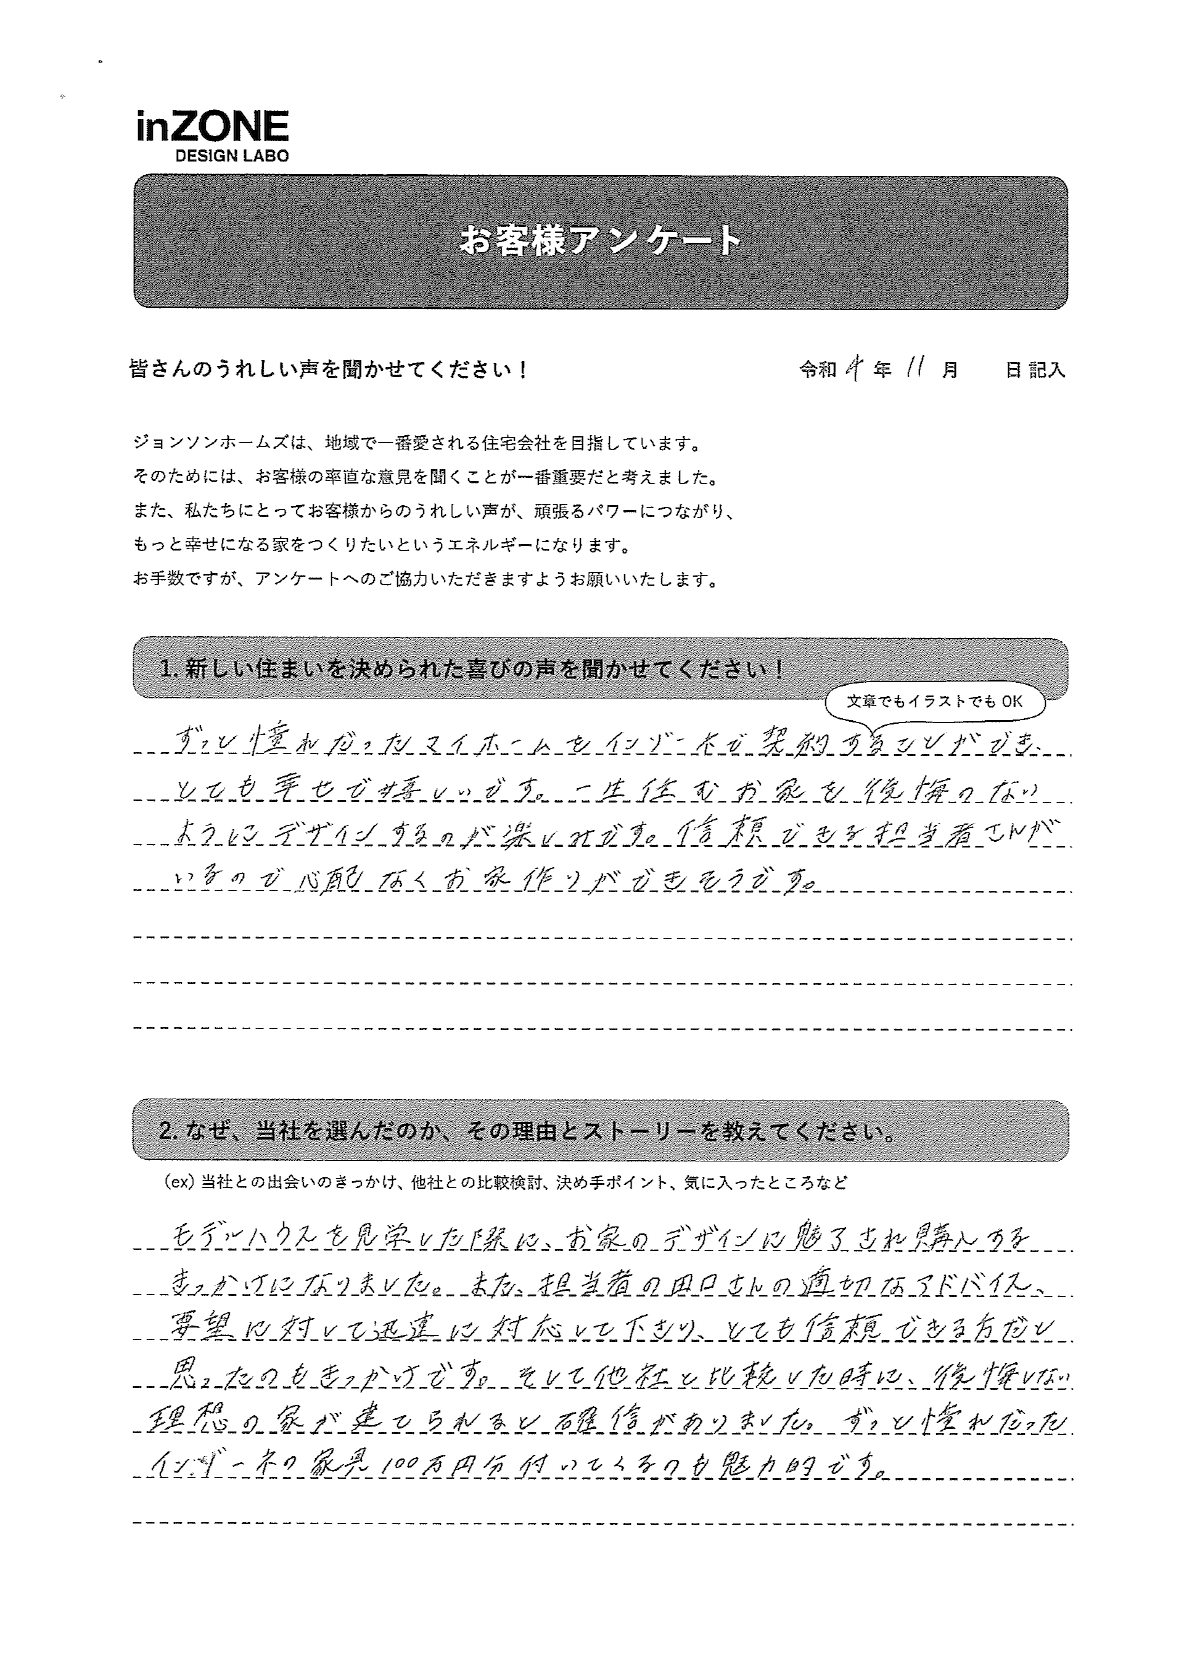 inZONE
DESIGN LABO
お客様アンケート
皆さんのうれしい声を聞かせてください！
令和 4 年 11 月 日 記入
ジョンソンホームズは、地域で一番愛される住宅会社を目指しています。
そのためには、お客様の率直な意見を聞くことが一番重要だと考えました。
また、私たちにとってお客様からのうれしい声が、頑張るパワーにつながり、
もっと幸せになる家をつくりたいというエネルギーになります。
お手数ですが、アンケートへのご協力いただきますようお願いいたします。
1. 新しい住まいを決められた喜びの声を聞かせてください！
文章でもイラストでも OK
ずっと憧れだったマイホームをインゾーネで契約することができ、
とても幸せで嬉しいです。一生住むお家を後悔のない
ようにデザインするのが楽しみです。信頼できる担当者さんが
いるので心配なくお家作りができそうです。
2. なぜ、当社を選んだのか、その理由とストーリーを教えてください。
（ex）当社との出会いのきっかけ、他社との比較検討、決め手ポイント、気に入ったところなど
モデルハウスを見学した際に、お家のデザインに魅了され購入する
きっかけになりました。また、担当者の田口さんの適切なアドバイス、
要望に対して迅速に対応して下さり、とても信頼できる方だと
思ったのもきっかけです。そして他社と比較した時に、後悔しない
理想の家が建てられると確信がありました。ずっと憧れだった
インゾーネの家具100万円分付いてくるのも魅力的です。